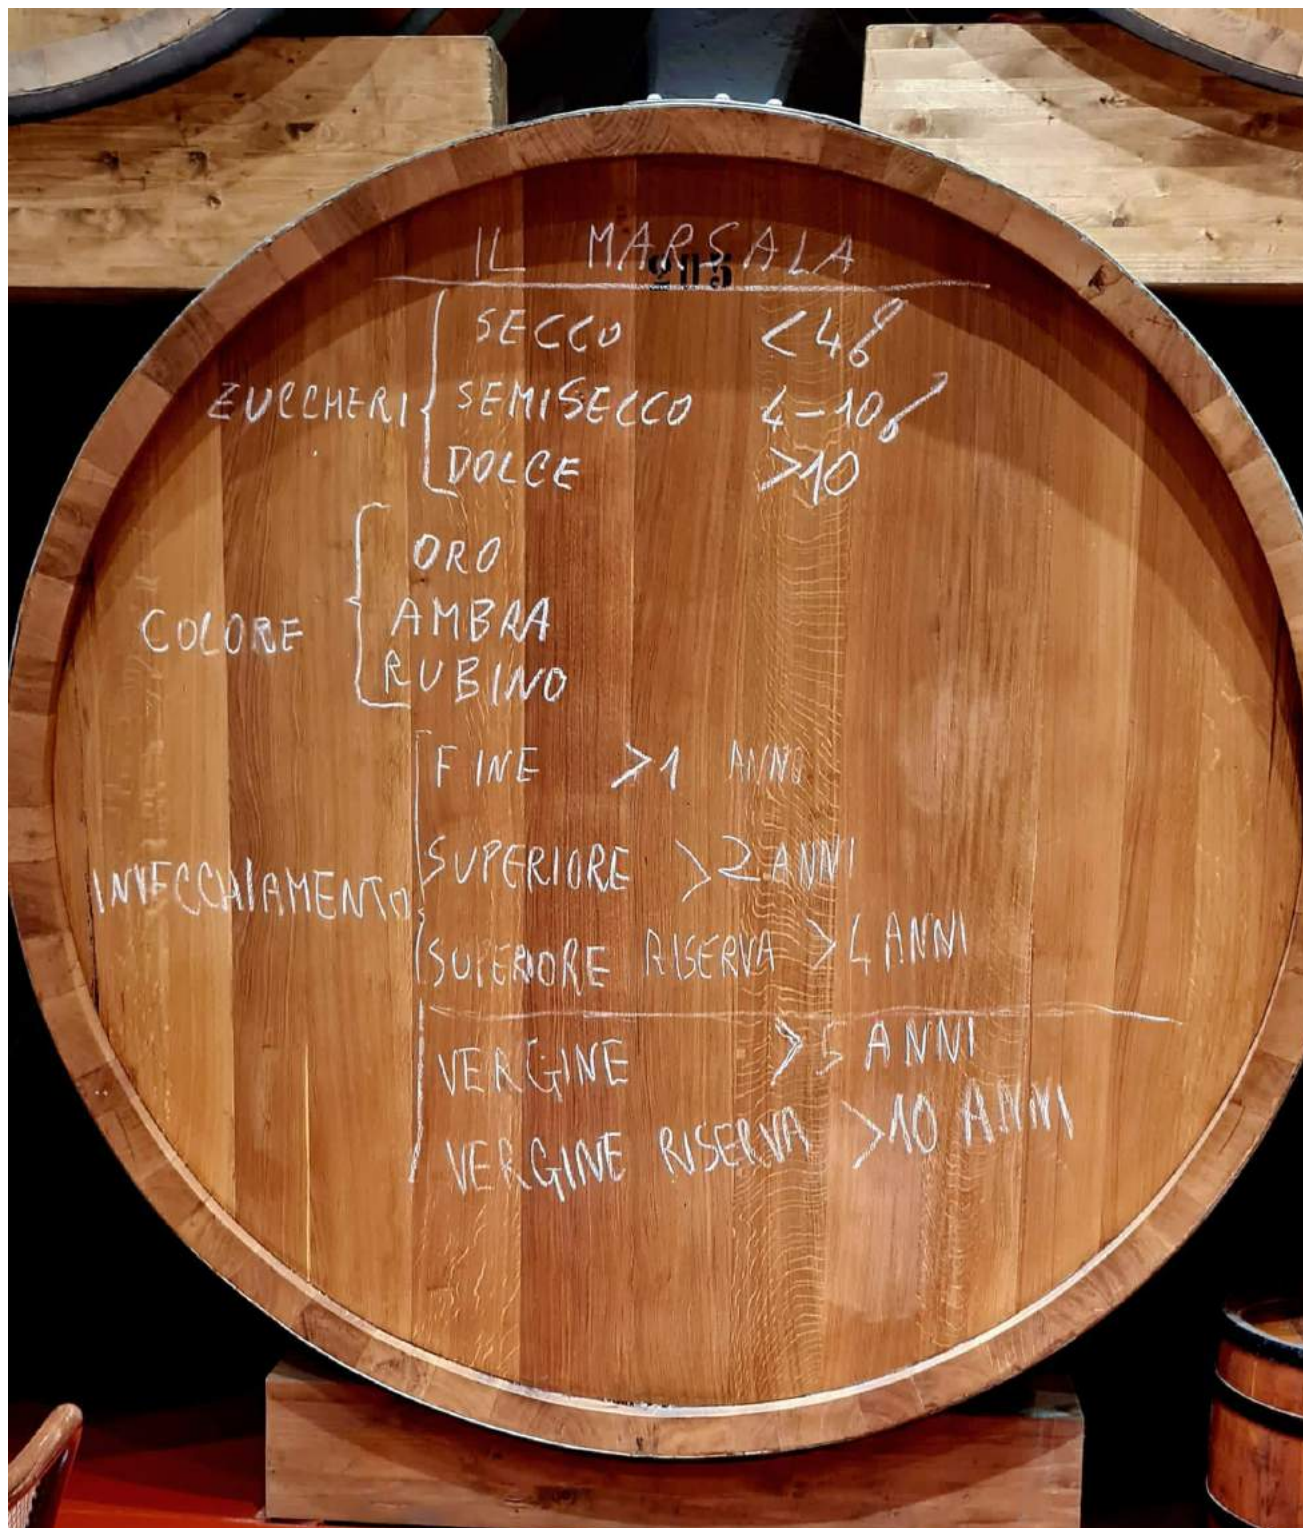 IL MARSALA
215
ZUCCHERI
SECCO <4%
SEMISECCO 4-10%
DOLCE >10
COLORE
ORO
AMBRA
RUBINO
INVECCHIAMENTO
FINE >1 ANNO
SUPERIORE >2 ANNI
SUPERIORE RISERVA >4 ANNI
VERGINE >5 ANNI
VERGINE RISERVA >10 ANNI